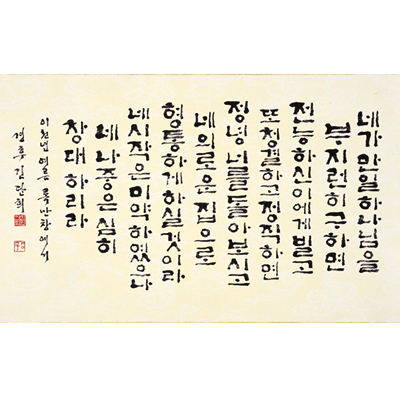 네가 만일 하나님을
부지런히 구하면
전능하신 이에게 빌고
또 청결하고 정직하면
정녕 너를 돌아보시고
네 의로운 집으로
형통하게 하실 것이라
네 시작은 미약하였으나
네 나중은 심히
창대하리라
이천년 여름
경후 김단희